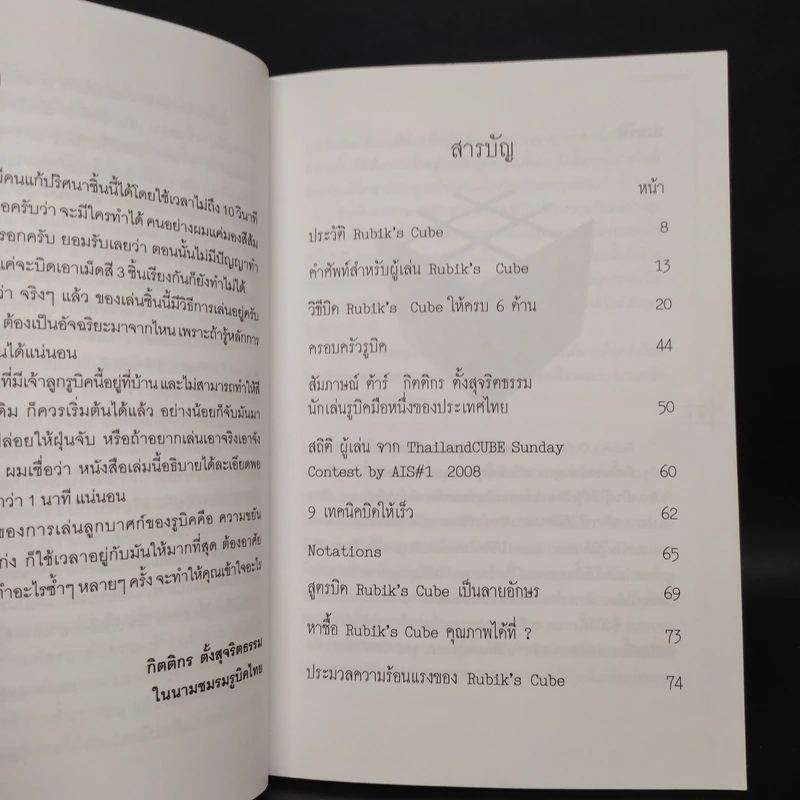 มีคนแก้ปริศนาชิ้นนี้ได้โดยใช้เวลาไม่ถึง 10 วินาที
จะมีใครทำได้ คนอย่างผมแค่มองสีส้ม
ยอมรับเลยว่า ตอนนั้นไม่มีปัญญาทำ
แค่จะบิดเอาเม็ดสี 3 ชิ้นเรียงกันก็ยังทำไม่ได้
ว่า จริงๆ แล้ว ของเล่นชิ้นนี้มีวิธีการเล่นอยู่ครับ
ต้องเป็นอัจฉริยะมาจากไหน เพราะถ้ารู้หลักการ
นได้แน่นอน
ที่มีเจ้าลูกรูบิคนี้อยู่ที่บ้าน และไม่สามารถทำให้สี
ก็ควรเริ่มต้นได้แล้ว อย่างน้อยก็จับมันมา
ปล่อยให้ฝุ่นจับ หรือถ้าอยากเล่นเอาจริงเอาจัง
ผมเชื่อว่า หนังสือเล่มนี้อธิบายได้ละเอียดพอ
กว่า 1 นาที แน่นอน
ของการเล่นลูกบาศก์ของรูบิคคือ ความขยัน
ก็ใช้เวลาอยู่กับมันให้มากที่สุด ต้องอาศัย
ทำอะไรซ้ำๆ หลายๆ ครั้ง จะทำให้คุณเข้าใจอะไร
กิตติกร ตั้งสุจริตธรรม
ในนามชมรมรูบิคไทย
สารบัญ
หน้า
ประวัติ Rubik's Cube 8
คำศัพท์สำหรับผู้เล่น Rubik's Cube 13
วิธีบิด Rubik's Cube ให้ครบ 6 ด้าน 20
ครอบครัวรูบิค 44
สัมภาษณ์ ต้าร์ กิตติกร ตั้งสุจริตธรรม
นักเล่นรูบิคมือหนึ่งของประเทศไทย 50
สถิติ ผู้เล่น จาก ThailandCUBE Sunday
Contest by AIS#1 2008 60
9 เทคนิคบิดให้เร็ว 62
Notations 65
สูตรบิด Rubik's Cube เป็นลายอักษร 69
หาซื้อ Rubik's Cube คุณภาพได้ที่ ? 73
ประมวลความร้อนแรงของ Rubik's Cube 74